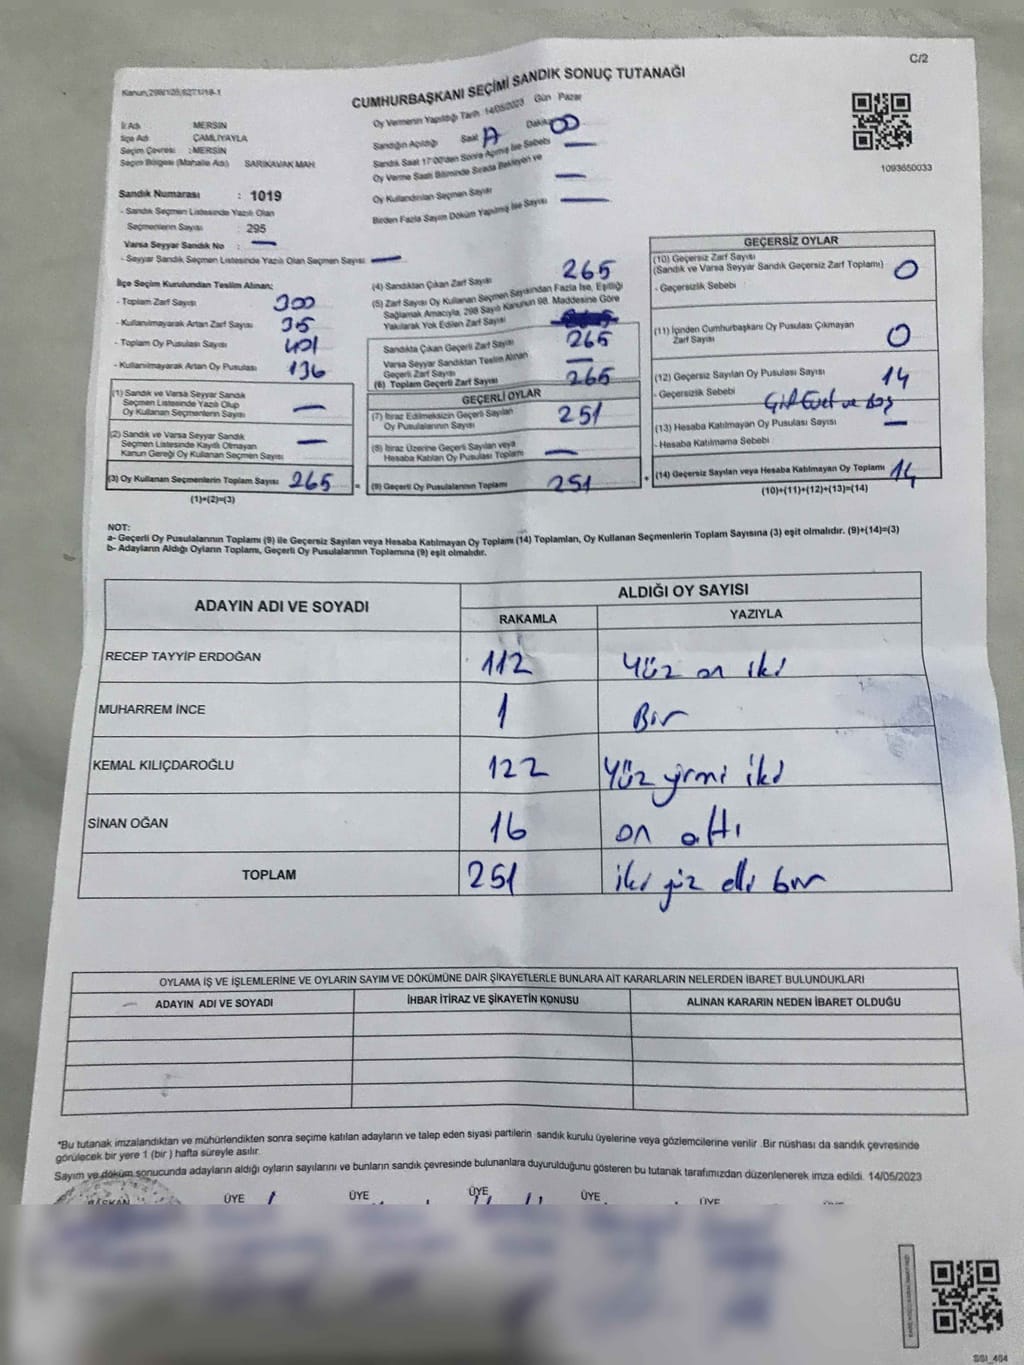 C/2
Kanun,298/126,6271/18-1
CUMHURBAŞKANI SEÇİMİ SANDIK SONUÇ TUTANAĞI
İl Adı : MERSİN
İlçe Adı : ÇAMLIYAYLA
Seçim Çevresi : MERSİN
Seçim Bölgesi (Mahalle Adı) SARIKAVAK MAH
Oy Vermenin Yapıldığı Tarih 14/05/2023 Gün Pazar
Sandığın Açıldığı Saat Dakika 00
Sandık Saat 17:00'den Sonra Açılmış İse Sebebi —
Oy Verme Saati Bitiminde Sırada Bekleyen ve
Oy Kullandırılan Seçmen Sayısı —
Birden Fazla Sayım Döküm Yapılmış İse Sayısı —
1093650033
Sandık Numarası : 1019
- Sandık Seçmen Listesinde Yazılı Olan
Seçmenlerin Sayısı : 295
Varsa Seyyar Sandık No : —
- Seyyar Sandık Seçmen Listesinde Yazılı Olan Seçmen Sayısı —
İlçe Seçim Kurulundan Teslim Alınan;
- Toplam Zarf Sayısı 300
- Kullanılmayarak Artan Zarf Sayısı 35
- Toplam Oy Pusulası Sayısı 401
- Kullanılmayarak Artan Oy Pusulası 136
(1) Sandık ve Varsa Seyyar Sandık
Seçmen Listesinde Yazılı Olup
Oy Kullanan Seçmenlerin Sayısı —
(2) Sandık ve Varsa Seyyar Sandık
Seçmen Listesinde Kayıtlı Olmayan
Kanun Gereği Oy Kullanan Seçmen Sayısı —
(3) Oy Kullanan Seçmenlerin Toplam Sayısı 265
(1)+(2)=(3)
(4) Sandıktan Çıkan Zarf Sayısı 265
(5) Zarf Sayısı Oy Kullanan Seçmen Sayısından Fazla İse, Eşitliği
Sağlamak Amacıyla, 298 Sayılı Kanunun 98. Maddesine Göre
Yakılarak Yok Edilen Zarf Sayısı
Sandıkta Çıkan Geçerli Zarf Sayısı 265
Varsa Seyyar Sandıktan Teslim Alınan
Geçerli Zarf Sayısı —
(6) Toplam Geçerli Zarf Sayısı 265
GEÇERLİ OYLAR
(7) İtiraz Edilmeksizin Geçerli Sayılan
Oy Pusulalarının Sayısı 251
(8) İtiraz Üzerine Geçerli Sayılan veya
Hesaba Katılan Oy Pusulası Toplamı —
= (9) Geçerli Oy Pusulalarının Toplamı 251
GEÇERSİZ OYLAR
(10) Geçersiz Zarf Sayısı
(Sandık ve Varsa Seyyar Sandık Geçersiz Zarf Toplamı) 0
- Geçersizlik Sebebi
(11) İçinden Cumhurbaşkanı Oy Pusulası Çıkmayan
Zarf Sayısı 0
(12) Geçersiz Sayılan Oy Pusulası Sayısı 14
- Geçersizlik Sebebi Çift Evet ve Boş
(13) Hesaba Katılmayan Oy Pusulası Sayısı —
- Hesaba Katılmama Sebebi
+ (14) Geçersiz Sayılan veya Hesaba Katılmayan Oy Toplamı 14
(10)+(11)+(12)+(13)=(14)
NOT:
a- Geçerli Oy Pusulalarının Toplamı (9) ile Geçersiz Sayılan veya Hesaba Katılmayan Oy Toplam (14) Toplamları, Oy Kullanan Seçmenlerin Toplam Sayısına (3) eşit olmalıdır. (9)+(14)=(3)
b- Adayların Aldığı Oyların Toplamı, Geçerli Oy Pusulalarının Toplamına (9) eşit olmalıdır.
ADAYIN ADI VE SOYADI ALDIĞI OY SAYISI
RAKAMLA YAZIYLA
RECEP TAYYİP ERDOĞAN 112 Yüz on iki
MUHARREM İNCE 1 Bir
KEMAL KILIÇDAROĞLU 122 Yüz yirmi iki
SİNAN OĞAN 16 on altı
TOPLAM 251 iki yüz elli bir
OYLAMA İŞ VE İŞLEMLERİNE VE OYLARIN SAYIM VE DÖKÜMÜNE DAİR ŞİKAYETLERLE BUNLARA AİT KARARLARIN NELERDEN İBARET BULUNDUKLARI
ADAYIN ADI VE SOYADI İHBAR İTİRAZ VE ŞİKAYETİN KONUSU ALINAN KARARIN NEDEN İBARET OLDUĞU
*Bu tutanak imzalandıktan ve mühürlendikten sonra seçime katılan adayların ve talep eden siyasi partilerin sandık kurulu üyelerine veya gözlemcilerine verilir .Bir nüshası da sandık çevresinde
görülecek bir yere 1 (bir ) hafta süreyle asılır.
Sayım ve döküm sonucunda adayların aldığı oyların sayılarını ve bunların sandık çevresinde bulunanlara duyurulduğunu gösteren bu tutanak tarafımızdan düzenlenerek imza edildi. 14/05/2023
BAŞKAN ÜYE ÜYE ÜYE ÜYE ÜYE
SSI_404